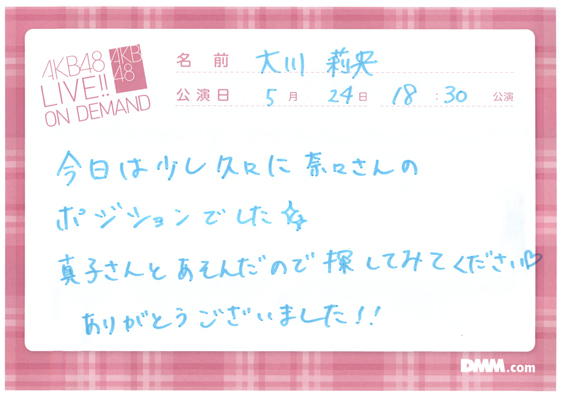 AKB48
LIVE!!
ON DEMAND
AKB
48
名前 大川 莉央
公演日 5月 24日 18:30 公演
今日は少し久々に奈々さんの
ポジションでした☆
真子さんとあそんだので探してみてください♡
ありがとうございました!!
DMM.com